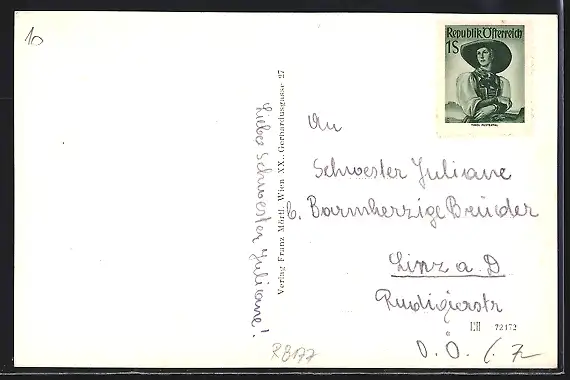 10
Republik Österreich
1S
TIROL PUSTERTAL
Verlag Franz Mörtl, Wien XX., Gerhardusgasse 27
Liebe Schwester Juliane!
An
Schwester Juliane
b. Barmherzige Brüder
Linz a. D
Rudigierstr
72172
O. Ö.
R8177